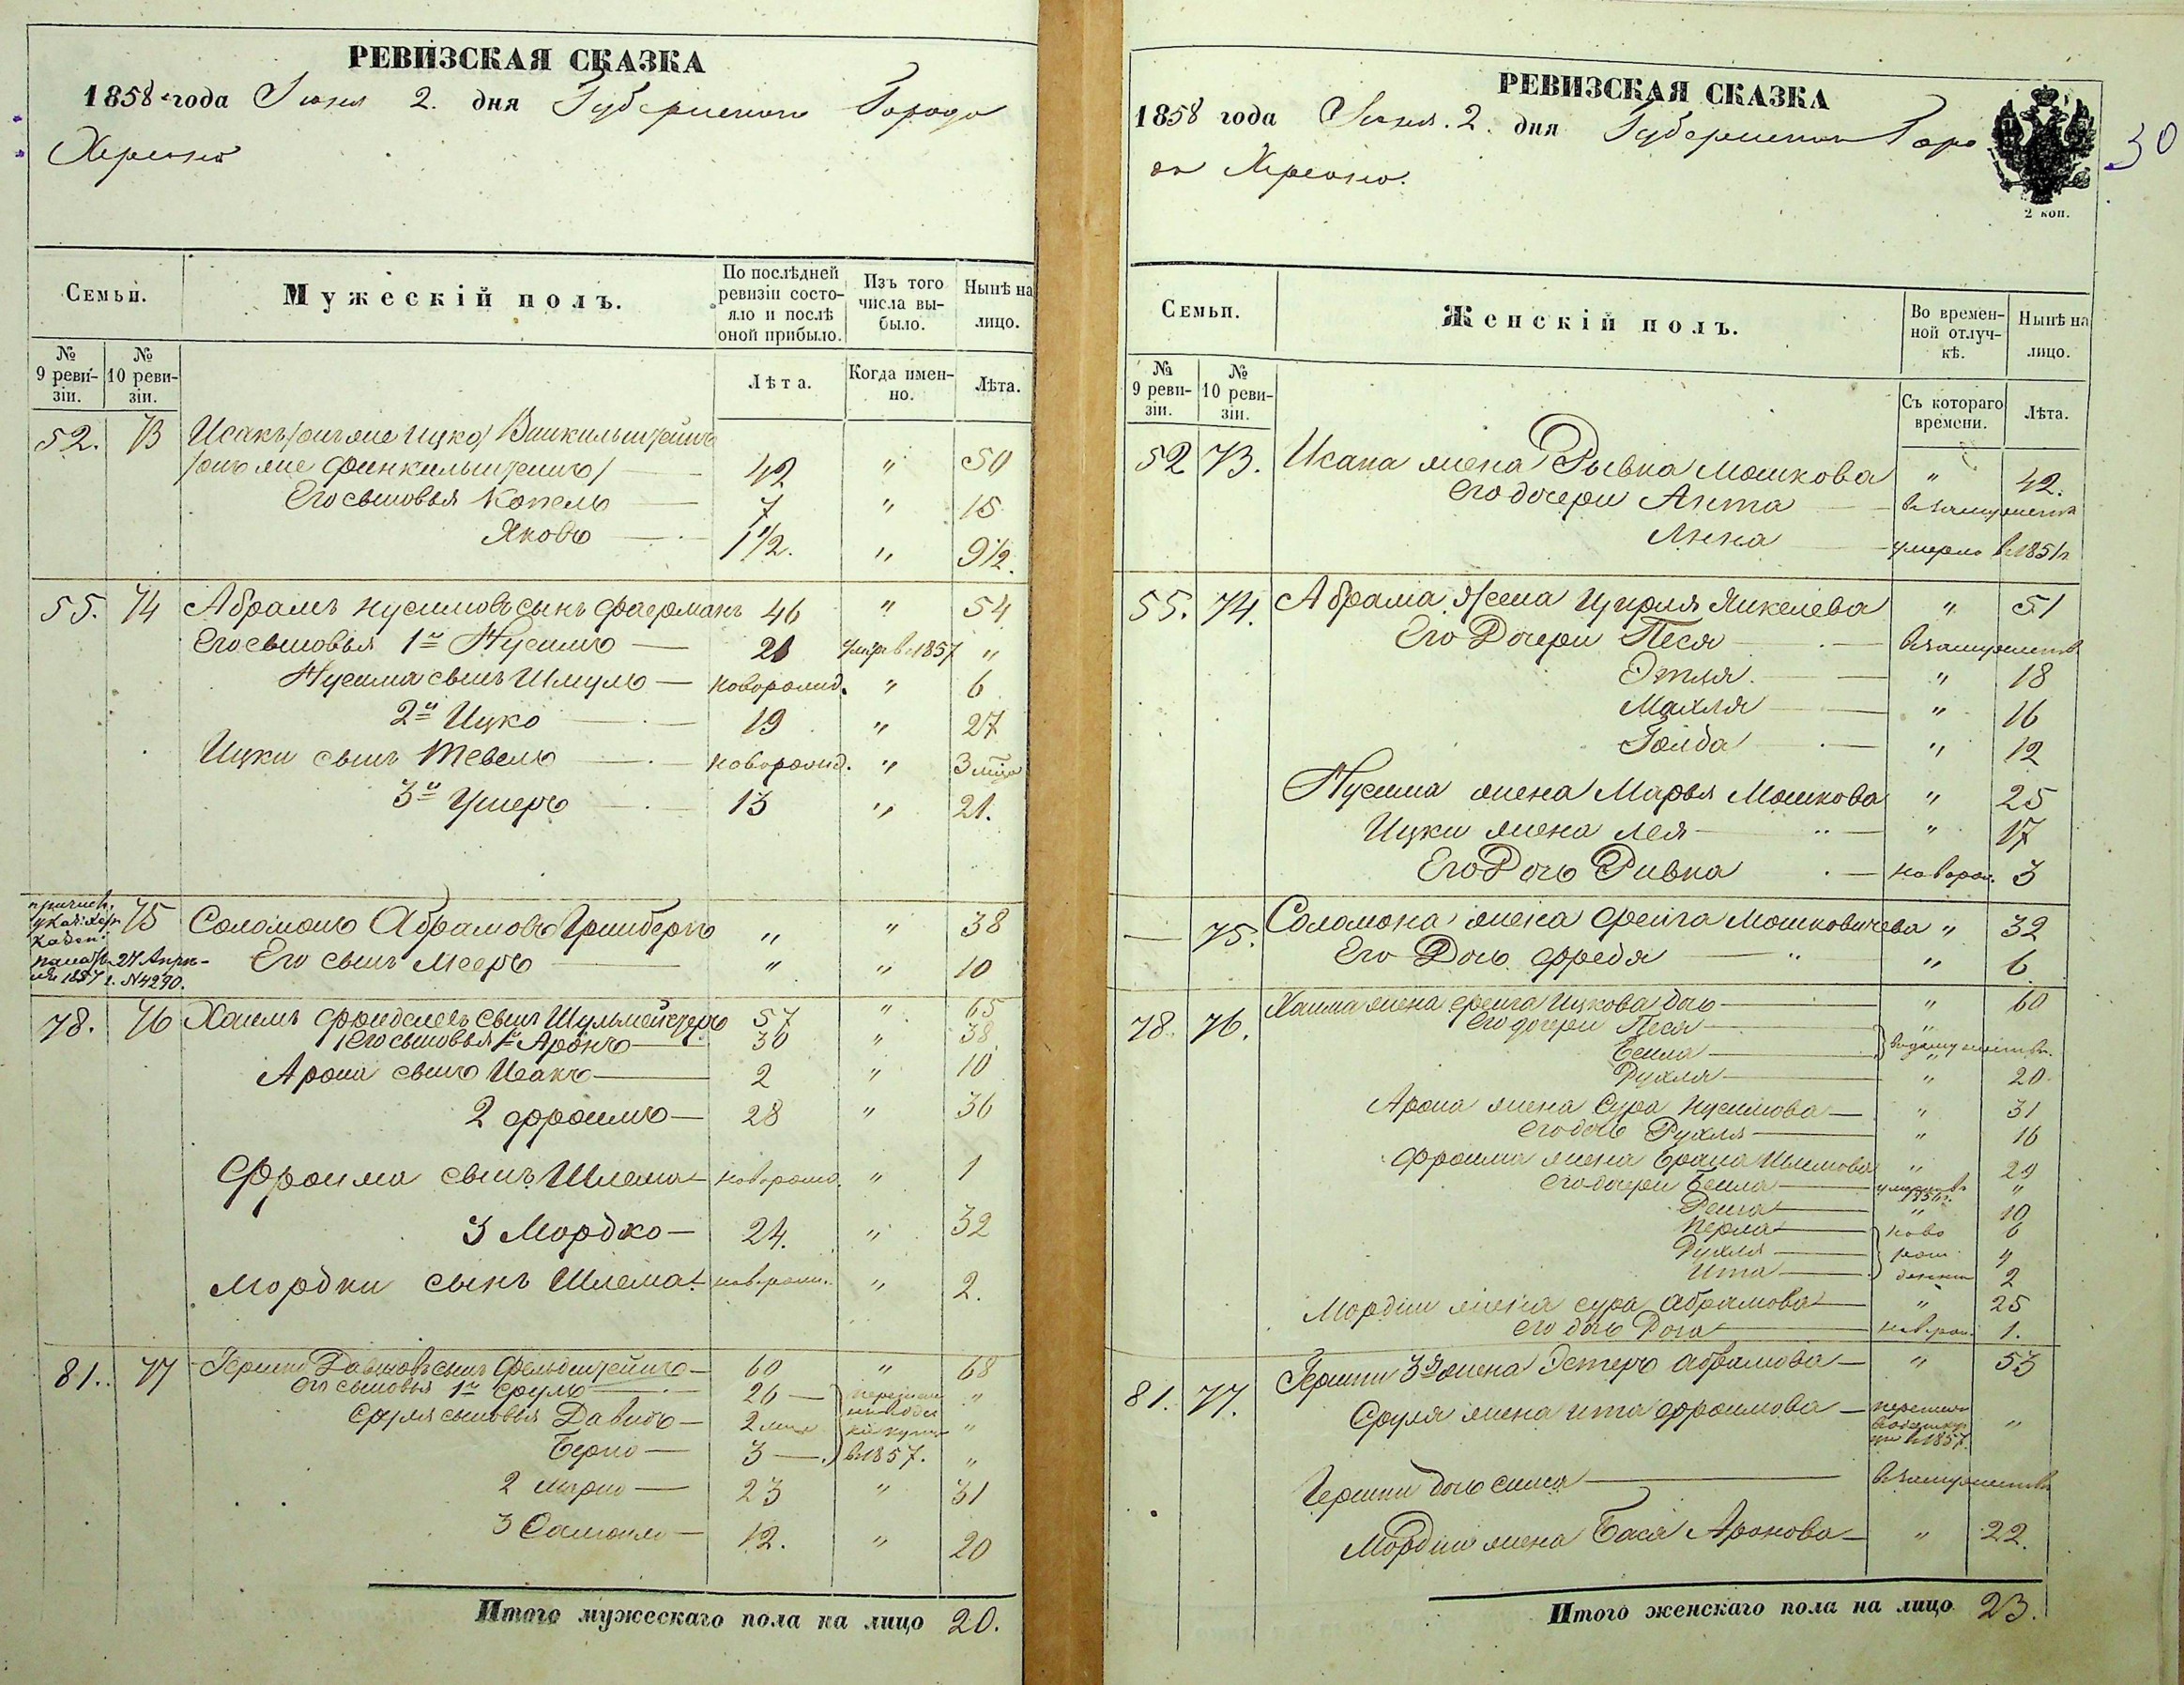 РЕВИЗСКАЯ СКАЗКА
1858 года Июня 2. дня Губернскаго Города
Херсона
Семьи.
Мужескій полъ.
По послѣдней ревизіи состояло и послѣ оной прибыло.
Изъ того числа выбыло.
Нынѣ на лицо.
№ 9 ревизіи.
№ 10 ревизіи.
Лѣта.
Когда именно.
Лѣта.
52. 73 Исакъ /онъ же Ицко/ Винкильштейнъ
/онъ же Финкильштейнъ/ 42 " 50
Его сыновья Копель 7 " 15
Яковъ 1 1/2. " 9 1/2.
55. 74 Абрамъ Нусимовъ сынъ Фаерманъ 46 " 54
Его сыновья 1й Нусимъ — 21 умре в 1857 "
Нусима сынъ Шмуль — новорожд. " 6
2й Ицко 19 " 27
Ицки сынъ Тевель новорожд. " 3 мѣся
3й Ушеръ 13 " 21.
причис. указ. Хер. Казен. палаты 27 Апреля 1857 г. N 4290.
75 Соломонъ Абрамовъ Гринбергъ " " 38
Его сынъ Мееръ " " 10
78. 76 Хаимъ Фроимовъ сынъ Шульмейстеръ 57 " 65
Его сыновья 1й Аронъ 30 " 38
Арона сынъ Исакъ 2 " 10
2 Фроимъ — 28 " 36
Фроима сынъ Шлема новорожд. " 1
3 Мордко — 24. " 32
Мордки сынъ Шлема новорожд. " 2.
81. 77 Гершко Давидовъ сынъ Фельдштейнъ — 60 " 68
Его сыновья 1й Сруль 26 — "
Сруля сыновья Давидъ — 2 "
Берко — 3 — в 1857. "
2 Мордко — 23 " 31
3 Самойло — 12. " 20
Итого мужескаго пола на лицо 20.
РЕВИЗСКАЯ СКАЗКА
30
1858 года Июня. 2. дня Губернскаго Горо
да Херсона.
2 коп.
Семьи.
Женскій полъ.
Во временной отлучкѣ.
Нынѣ на лицо.
№ 9 ревизіи.
№ 10 ревизіи.
Съ котораго времени.
Лѣта.
52 73. Исака жена Рывка Мошкова " 42.
Его дочери Анта в замужестве
Анна умерла в 1851 г
55. 74. Абрама жена Цирля Янкелева " 51
Его Дочери Песя в замужеств
Этля. " 18
Махля " 16
Голда " 12
Нусима жена Марья Мошкова " 25
Ицки жена Лея " 17
Его Дочь Ривка новорож. 3
— 75. Соломона жена Фейга Мошковичева " 32
Его Дочь Фредя " 6
78. 76. Хаима жена Фейга Ицкова дочь " 60
Его дочери Песя "
Бейла в замужестве.
Рухля " 20
Арона жена Сура Нусимова " 31
Его дочь Рухля " 16
Фроима жена Брана Шлиомова " 29
Его дочери Бейла умерла в "
Рейза " 10
Перла ново 6
Рухля рож 4
Ита денны 2
Мордки жена Сура Абрамова " 25
Его дочь Роза новорож 1.
81. 77. Гершки 3я жена Эстеръ Абрамова — " 53
Сруля жена Ита Фроимова — перешла в 1857. "
Гершки дочь Сима в замужестве
Мордки жена Бася Аронова — " 22.
Итого женскаго пола на лицо 23.